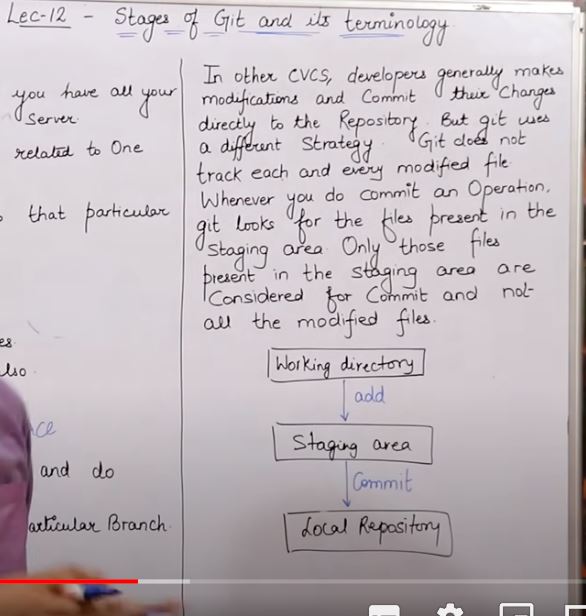 Lec-12 - Stages of Git and its terminology.
you have all your
Server.
related to One
that particular
es.
also.
and do
articular Branch.
In other CVCS, developers generally makes
modifications and Commit their Changes
directly to the Repository. But git uses
a different Strategy. Git does not
track each and every modified file.
Whenever you do commit an Operation,
git looks for the files present in the
Staging area. Only those files
present in the staging area are
Considered for Commit and not
all the modified files.
Working directory
add
Staging area
Commit
Local Repository